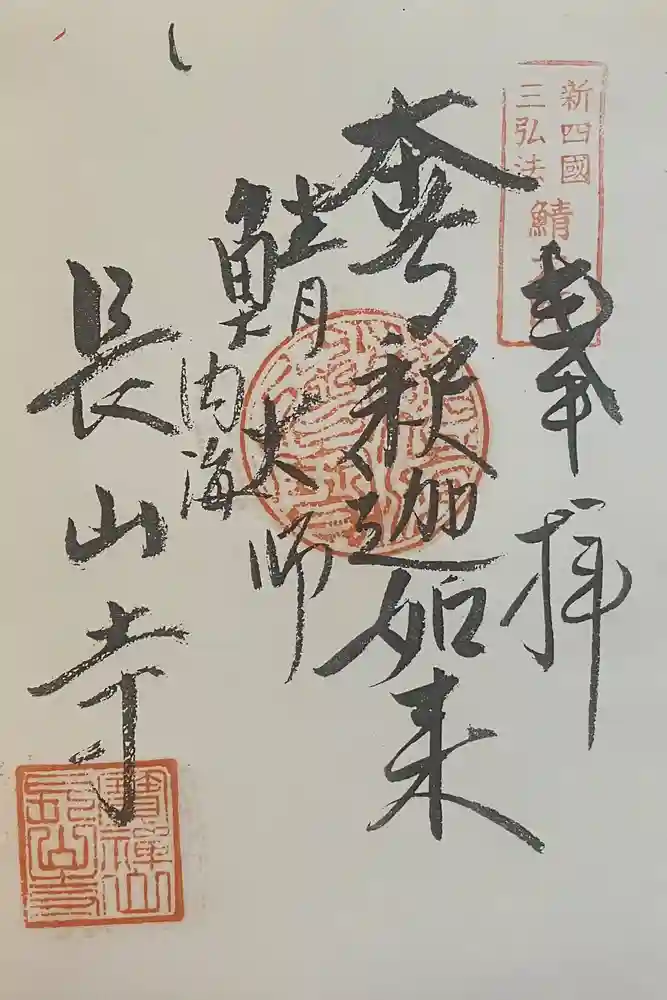 新四國
三弘法
鯖
奉拝
本尊釈迦如来
鯖大師
内海
長山寺
寶禪山
長山寺